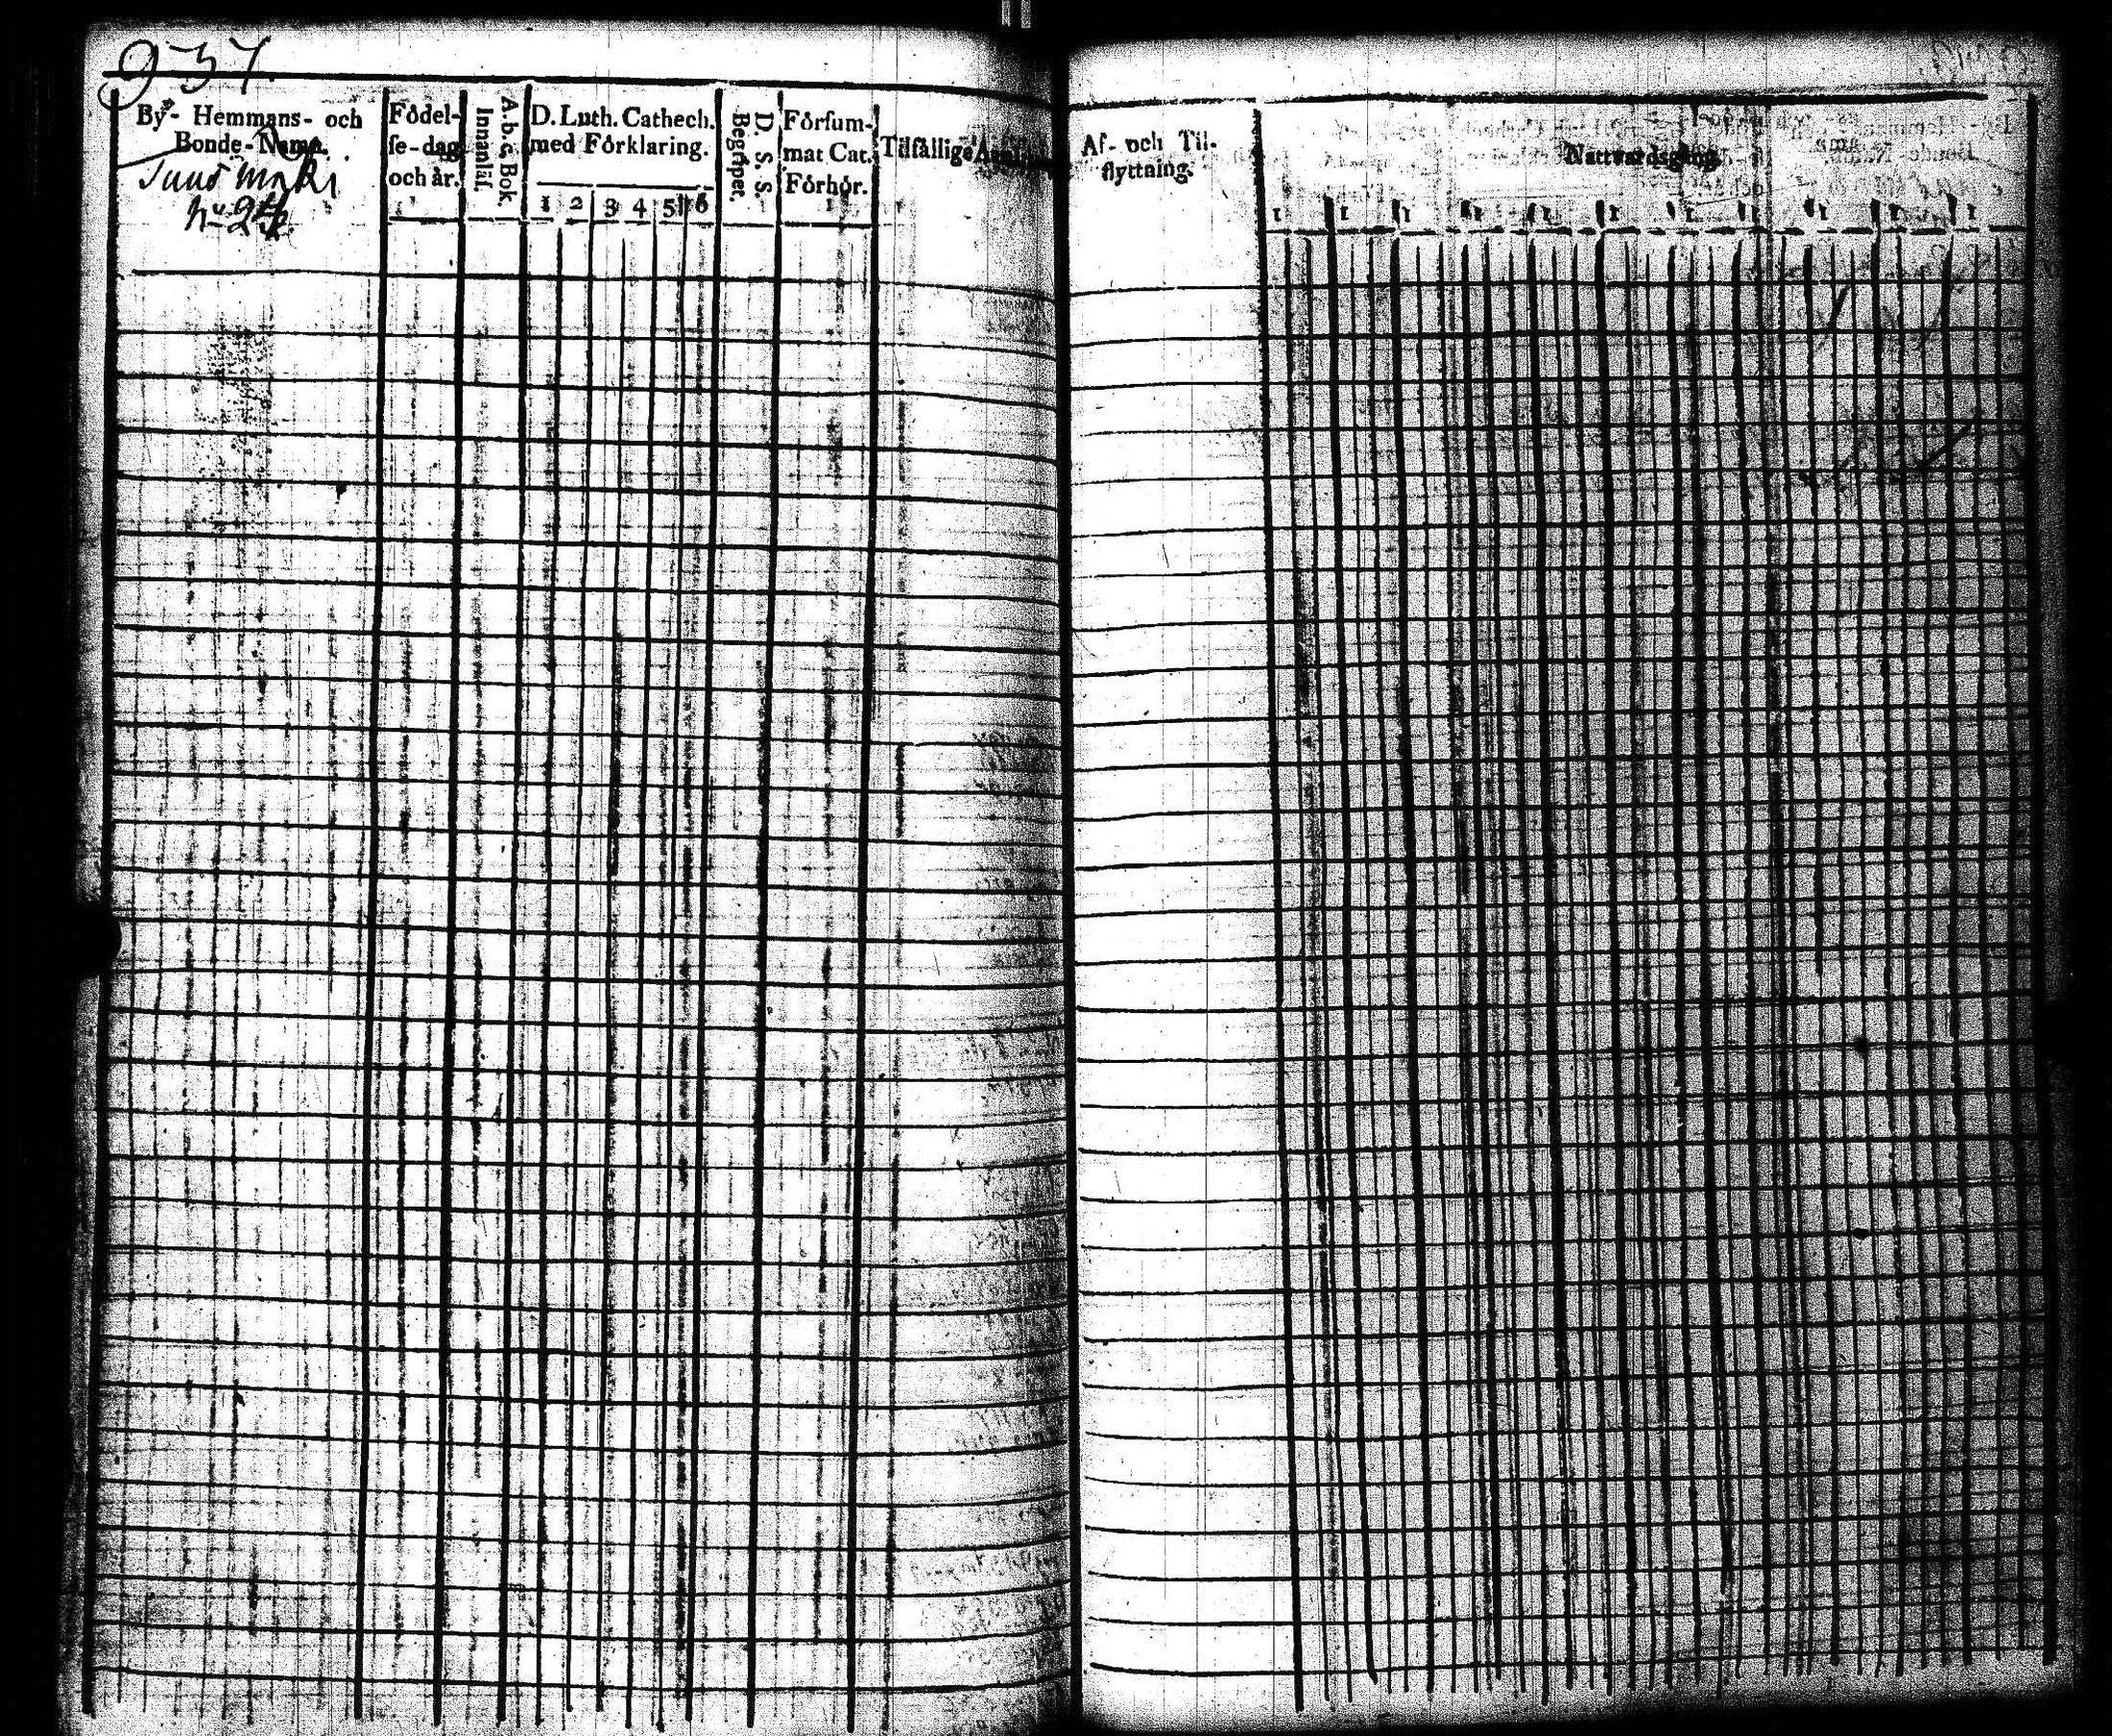 937.
By- Hemmans- och
Bonde-Namn.
N:o 2
Födel-
se-dag
och år.
A.b.c. Bok
Innanläs.
D. Luth. Cathech.
med Förklaring.
1 2 3 4 5 6
D. S. S.
Begriper.
Försum-
mat Cat.
Förhör.
1
Tilfällige
Af- och Til-
flyttning.
Nattvardsgång.
1 1 1 1 1 1 1 1 1 1 1